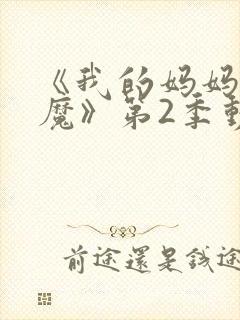 《我的妈妈
魔》第2季
前途還是钱途